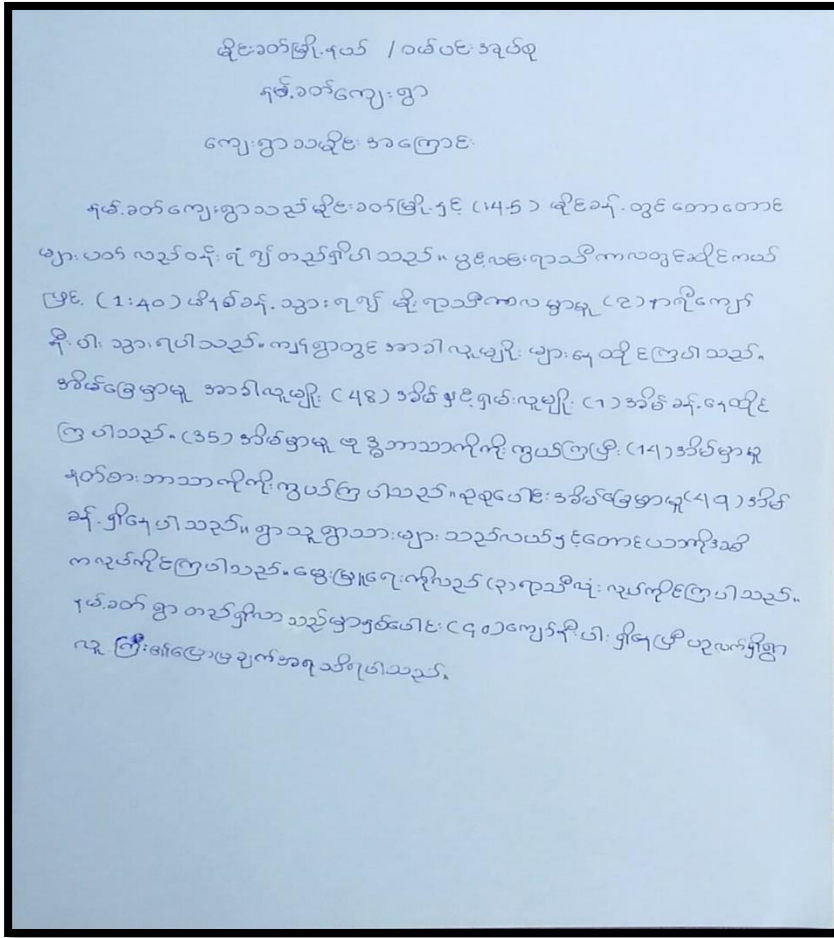 မိုင်းခတ်မြို့နယ် / ဝမ်ပင်းအုပ်စု
နမ့်ခတ်ကျေးရွာ
ကျေးရွာသမိုင်းအကြောင်း
နမ့်ခတ်ကျေးရွာသည် မိုင်းခတ်မြို့နှင့် (14.5) မိုင်ခန့်တွင် တောတောင်
များပတ်လည်ဝန်းရံ၍ တည်ရှိပါသည်။ ပွင့်လင်းရာသီကာလတွင် ဆိုင်ကယ်
ဖြင့် (1:40) မိနစ်ခန့် သွားရ၍ မိုးရာသီကာလမှာမူ (၃) နာရီကျော်
နီးပါး သွားရပါသည်။ ကျွန်ရွာတွင် အာခါလူမျိုးများ နေထိုင်ကြပါသည်။
အိမ်ခြေမှာမူ အာခါလူမျိုး (48) အိမ်နှင့် ရှမ်းလူမျိုး (1) အိမ်ခန့် နေထိုင်
ကြပါသည်။ (35) အိမ်မှာမူ ဗုဒ္ဓဘာသာကိုကိုးကွယ်ကြပြီး (14) အိမ်မှာမူ
နတ်စားဘာသာကိုကိုးကွယ်ကြပါသည်။ စုစုပေါင်းအိမ်ခြေမှာမူ (49) အိမ်
ခန့် ရှိနေပါသည်။ ရွာသူရွာသားများသည် လယ်နှင့်တောင်ယာကိုအဓိ
ကလုပ်ကိုင်ကြပါသည်။ မွေးမြူရေးကိုလည်း (၃) ရာသီလုံး လုပ်ကိုင်ကြပါသည်။
နမ့်ခတ်ရွာ တည်ရှိလာသည်မှာ နှစ်ပေါင်း (90) ကျော်နီးပါး ရှိနေပြီ ယခုလက်ရှိရွာ
လူကြီး၏ပြောပြချက်အရ သိရပါသည်။